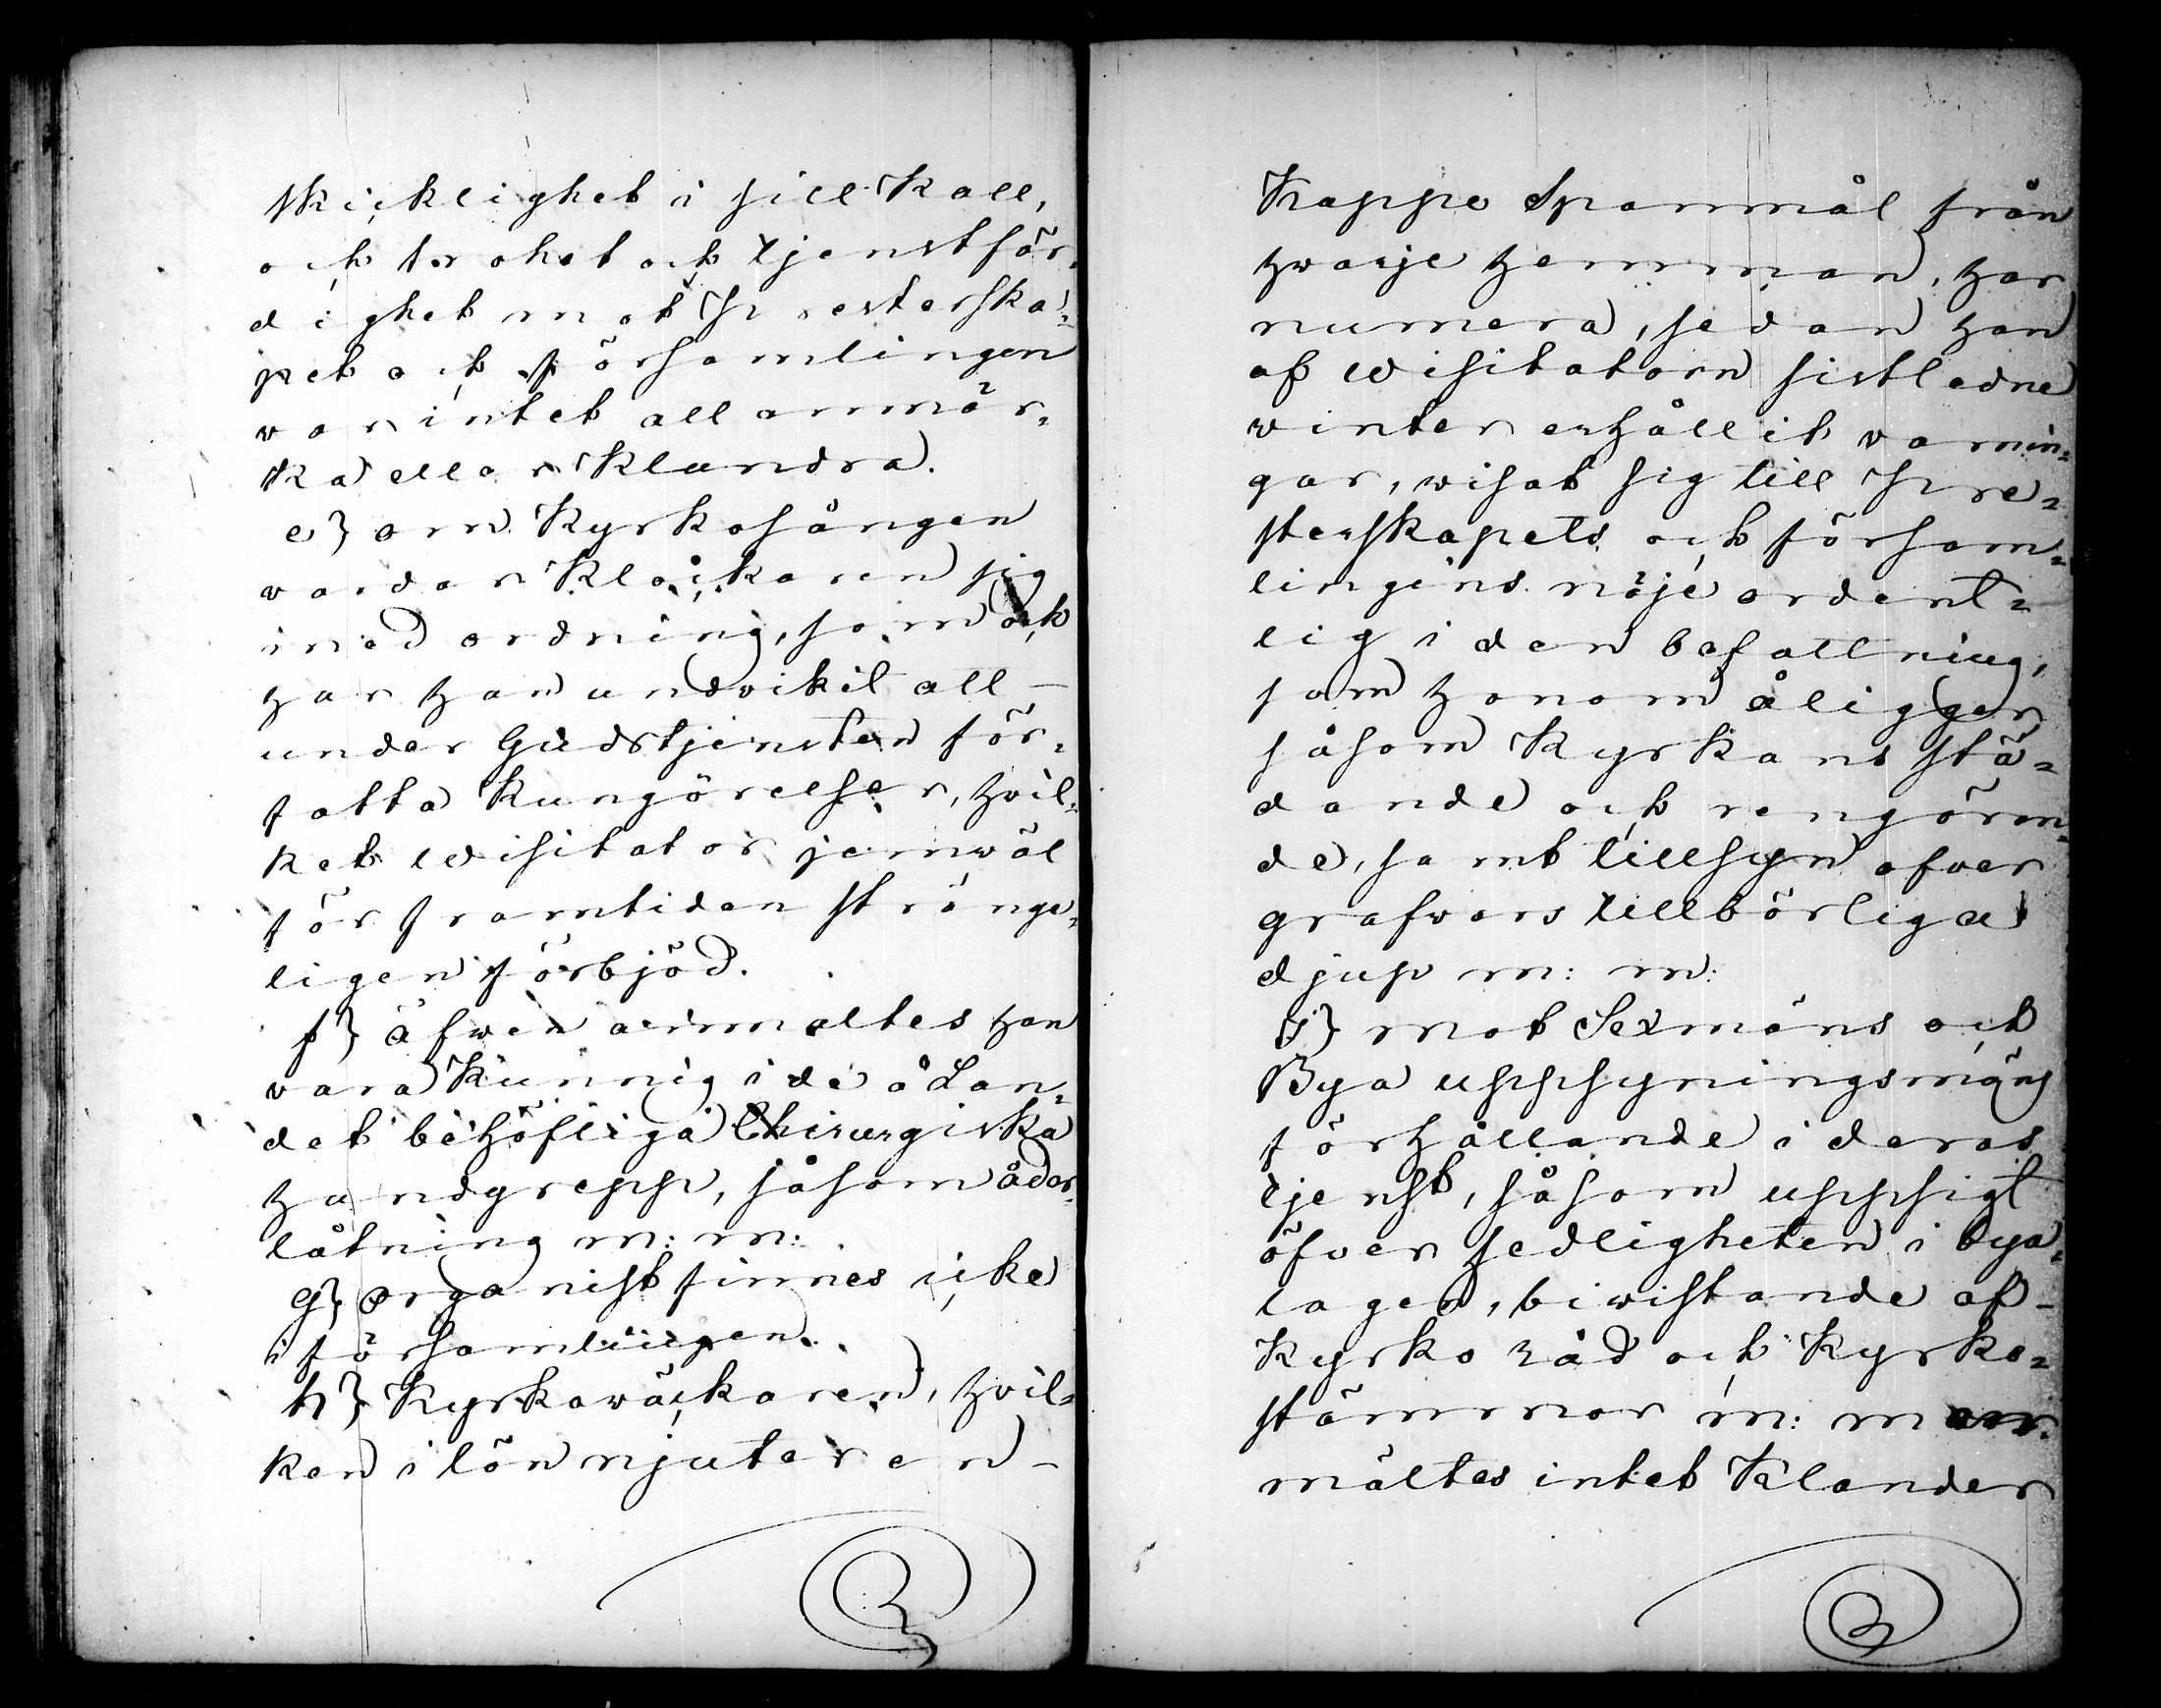 skicklighet i sitt Kall,
och trohet och tjenstfär¬
dighet mot Presterska¬
pet och församlingen
var intet att anmär¬
ka eller Klandra.
e) om Kyrkosången
vardar Klockaren sig
med ordning, som ock
har han undvikit att –
under Gudstjensten för¬
fatta Kungörelser, hvil¬
ket Wisitator jemwäl
för framtiden stränge¬
ligen förbjöd.
f) äfwen anmältes han
vara Kunnig i de å Lan¬
det behöfliga Chirurgiska
handgrepp, såsom åder¬
låtning m: m:
g) organist finnes icke
i församlingen.
h) Kyrkawäckaren, hvil¬
ken i lön njuter en –
Kappe Spanmål från
hwarje hemman, har
numera, sedan han
af Wisitatorn sistledne
winter erhållit varnin¬
gar, wisat sig till Pre¬
sterskapets och försam¬
lingens nöje ordent¬
lig i den befattning,
som honom åligger
såsom Kyrkans stä¬
dande och rengöran¬
de, samt tillsyn ofver
grafvars tillbörliga
djup m: m:
i) mot Sexmäns och
Bya uppsyningsmäns
förhållande i deras
tjenst, såsom uppsigt
öfver sedligheten i bya¬
lagen, biwistande af –
Kyrko råd och Kyrko¬
stämmor m: m an¬
mältes intet Klander